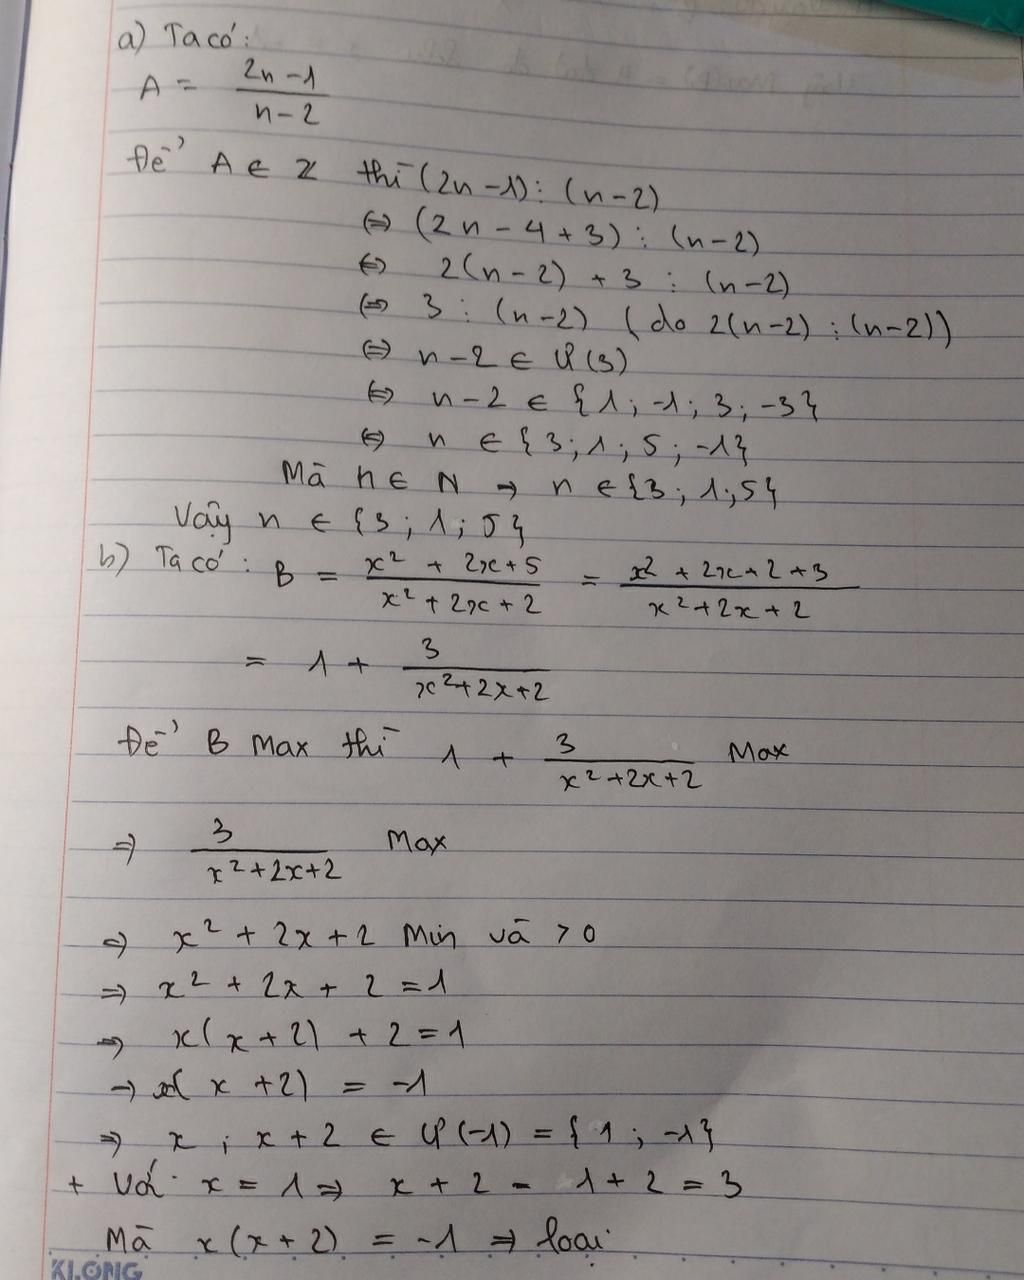 a) Ta có:
A = \frac{2n-1}{n-2}
Để A ∈ Z thì (2n-1) ⋮ (n-2)
⇔ (2n-4+3) ⋮ (n-2)
⇔ 2(n-2) + 3 ⋮ (n-2)
⇔ 3 ⋮ (n-2) (do 2(n-2) ⋮ (n-2))
⇔ n-2 ∈ Ư(3)
⇔ n-2 ∈ {1; -1; 3; -3}
⇔ n ∈ {3; 1; 5; -1}
Mà n ∈ N → n ∈ {3; 1; 5}
Vậy n ∈ {3; 1; 5}
b) Ta có: B = \frac{x^2 + 2x+5}{x^2+2x+2} = \frac{x^2+2x+2+3}{x^2+2x+2}
= 1 + \frac{3}{x^2+2x+2}
Để B Max thì 1 + \frac{3}{x^2+2x+2} Max
⇒ \frac{3}{x^2+2x+2} Max
⇒ x^2 + 2x + 2 Min và > 0
⇒ x^2 + 2x + 2 = 1
⇒ x(x+2) + 2 = 1
→ x(x+2) = -1
⇒ x; x+2 ∈ Ư(-1) = {1; -1}
+ Với x = 1 ⇒ x + 2 = 1+2 = 3
Mà x(x+2) = -1 ⇒ loại
KLONG